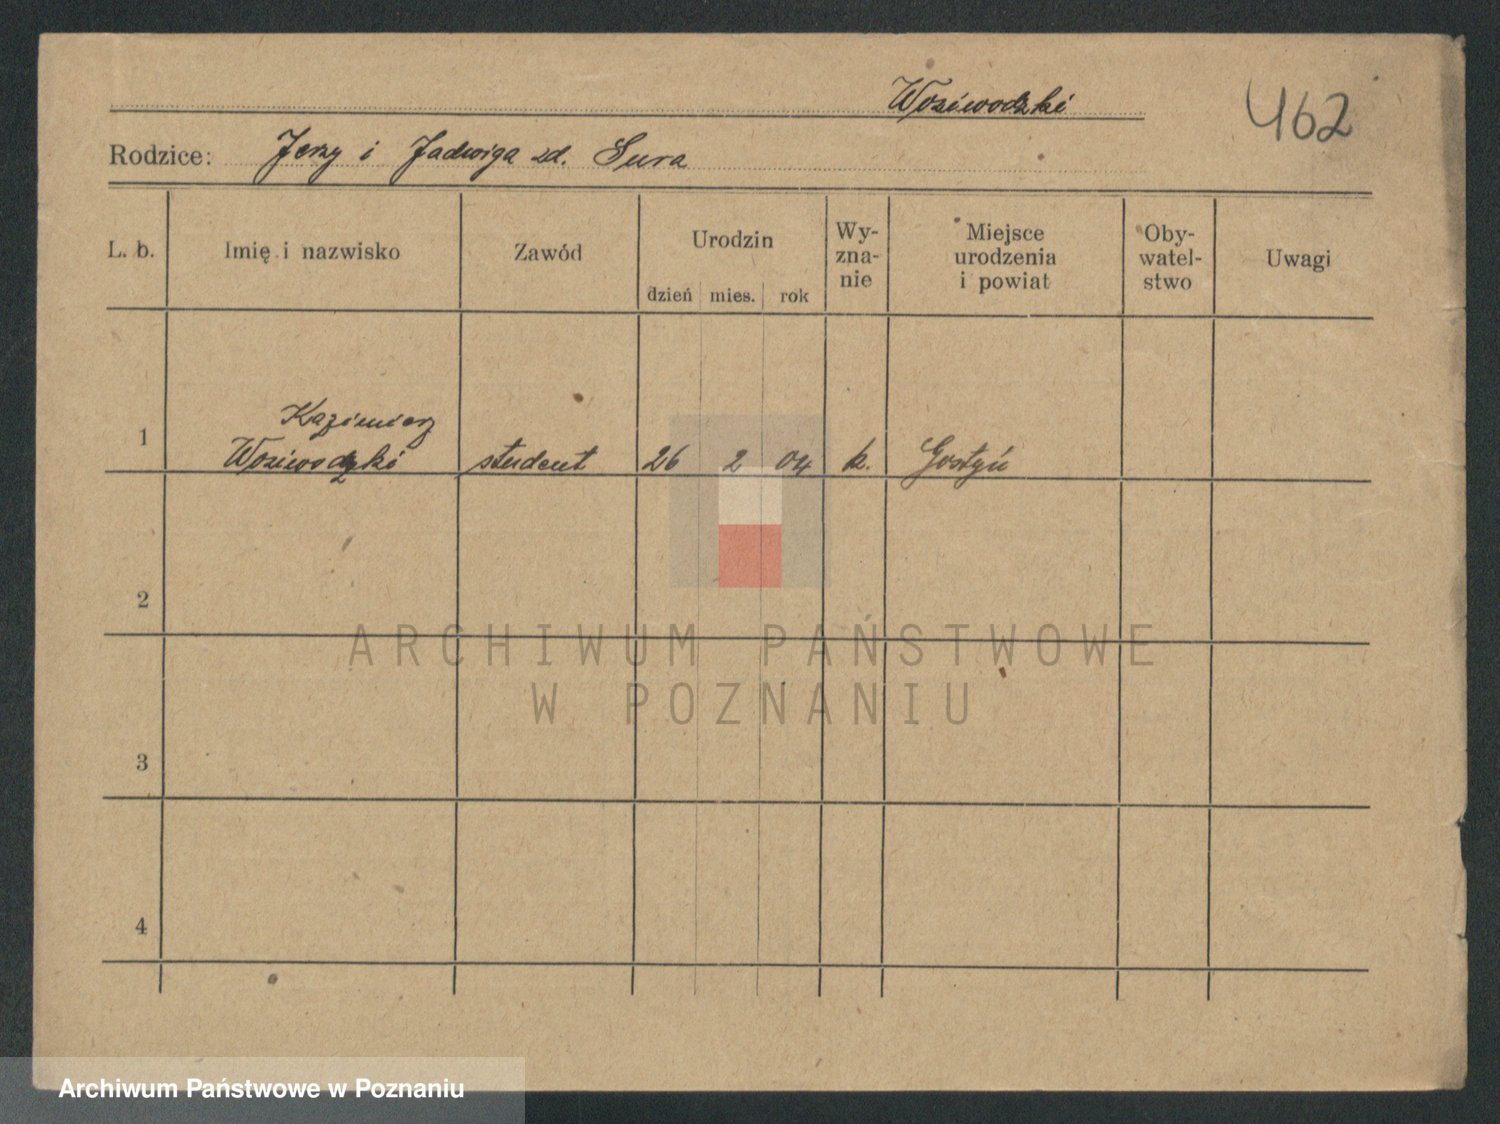 Wosiwodzki
462
Rodzice: Jerzy i Jadwiga zd. Sura
L. b. Imię i nazwisko Zawód Urodzin Wyznanie Miejsce urodzenia i powiat Obywatelstwo Uwagi
dzień mies. rok
Kazimierz
1 Wosiwodzki student 26 2 04 k. Gostyń
2
3
4
ARCHIWUM PAŃSTWOWE
W POZNANIU
Archiwum Państwowe w Poznaniu